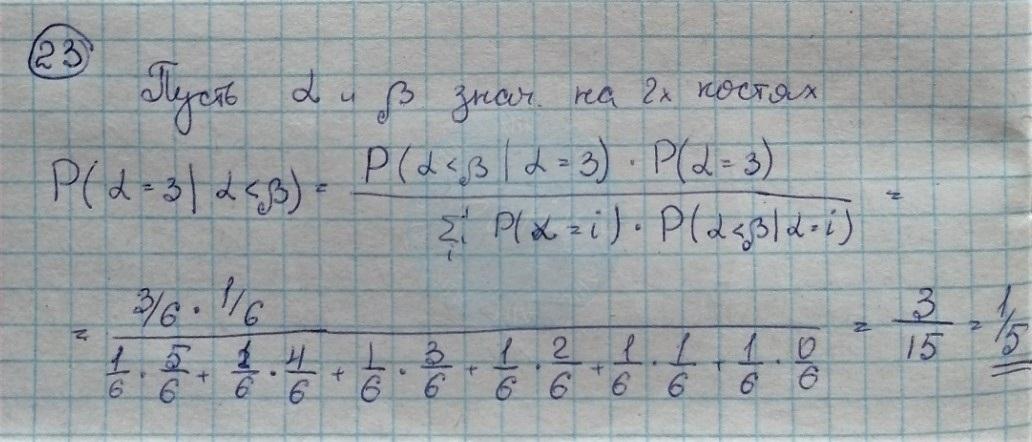 23
Пусть α и β знач. на 2х костях
P(α=3|α<β) = P(α<β|α=3) · P(α=3) / Σi P(α=i) · P(α<β|α=i) =
= 3/6 · 1/6 / 1/6 · 5/6 + 1/6 · 4/6 + 1/6 · 3/6 + 1/6 · 2/6 + 1/6 · 1/6 + 1/6 · 0/6 = 3/15 = 1/5